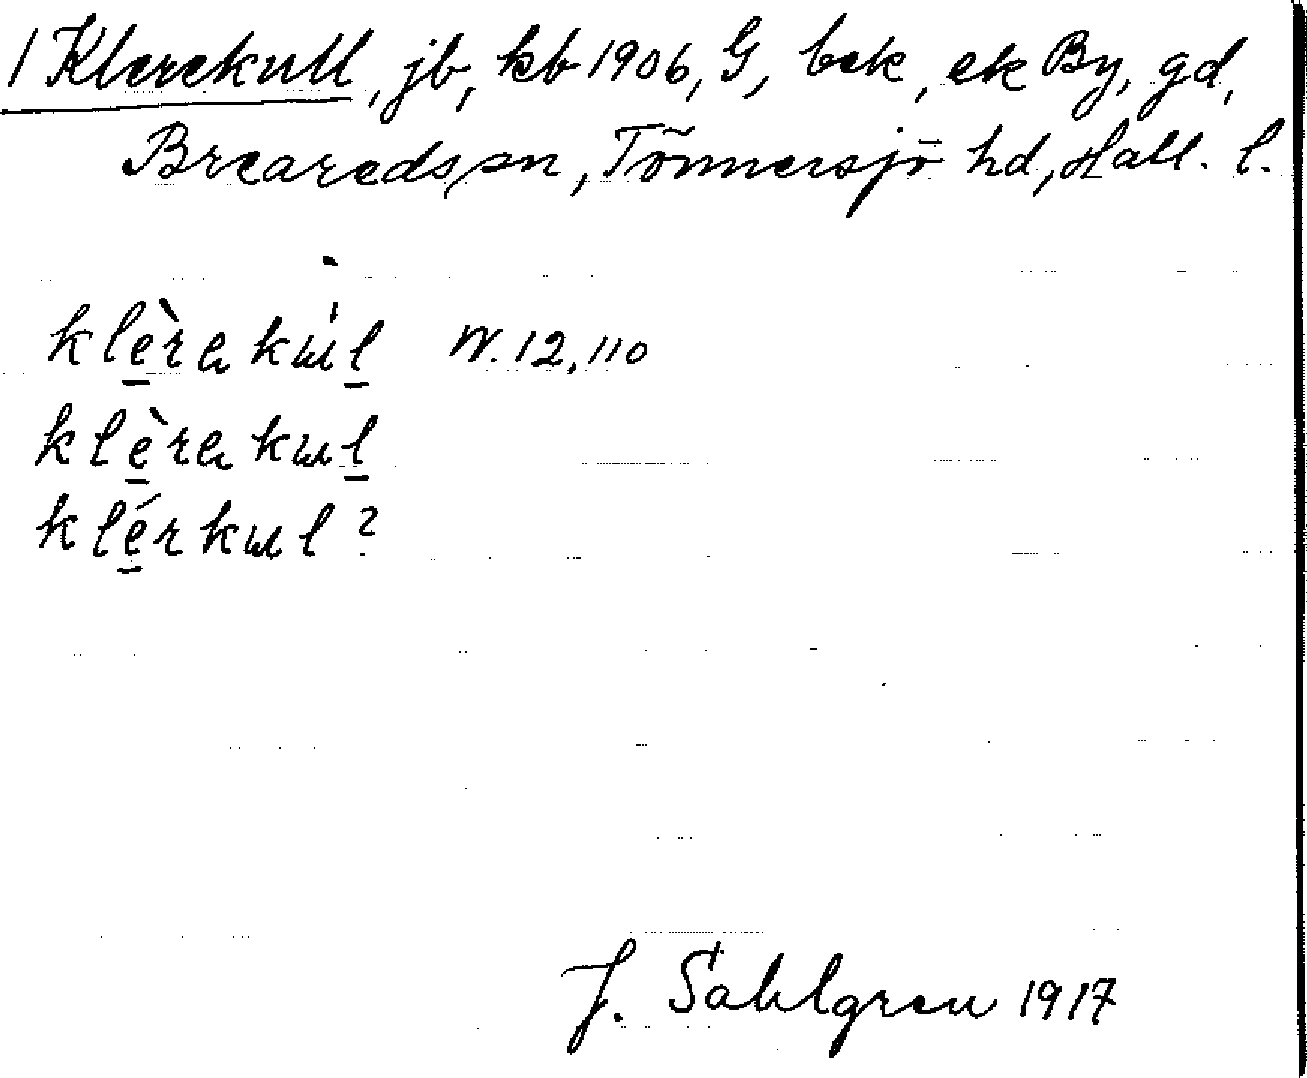 1 Klerekull, jb, kb 1906, G, bek, ek By, gd,
Breareds sn, Tönnersjö hd, Hall. l.
klèrakul W. 12, 110
klèrakul
klérkul?
J. Sahlgren 1917